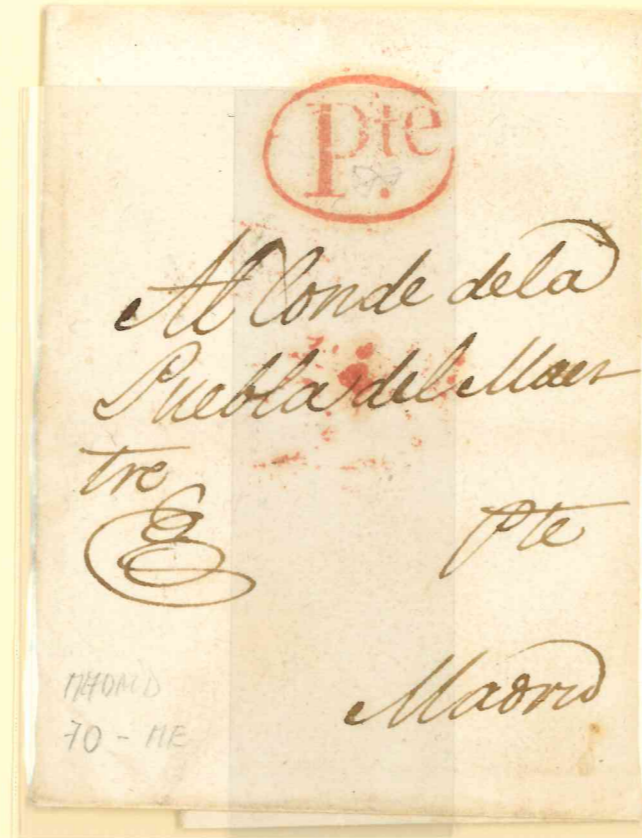 Pte.
Al Conde dela
Puebla del Maes
tre
Pte
Madrid
MADRID
70 - ME